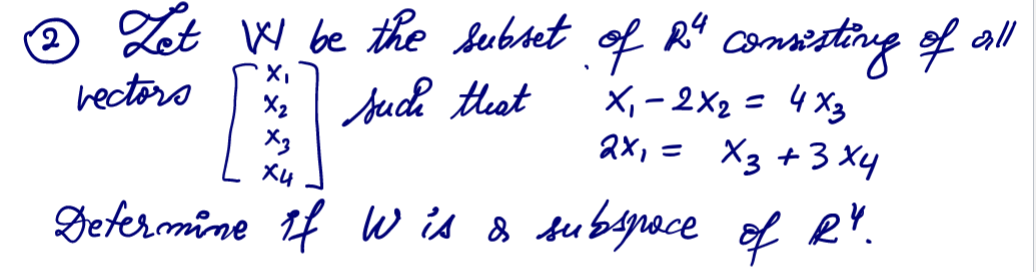 ② Let W be the subset of R⁴ consisting of all
vectors [x₁ x₂ x₃ x₄] such that x₁ - 2x₂ = 4x₃
2x₁ = x₃ + 3x₄
Determine if W is a subspace of R⁴.